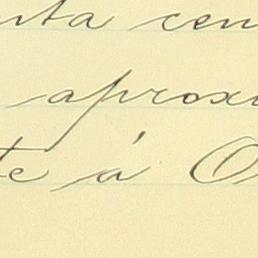 nta cen
aproxi
te á O